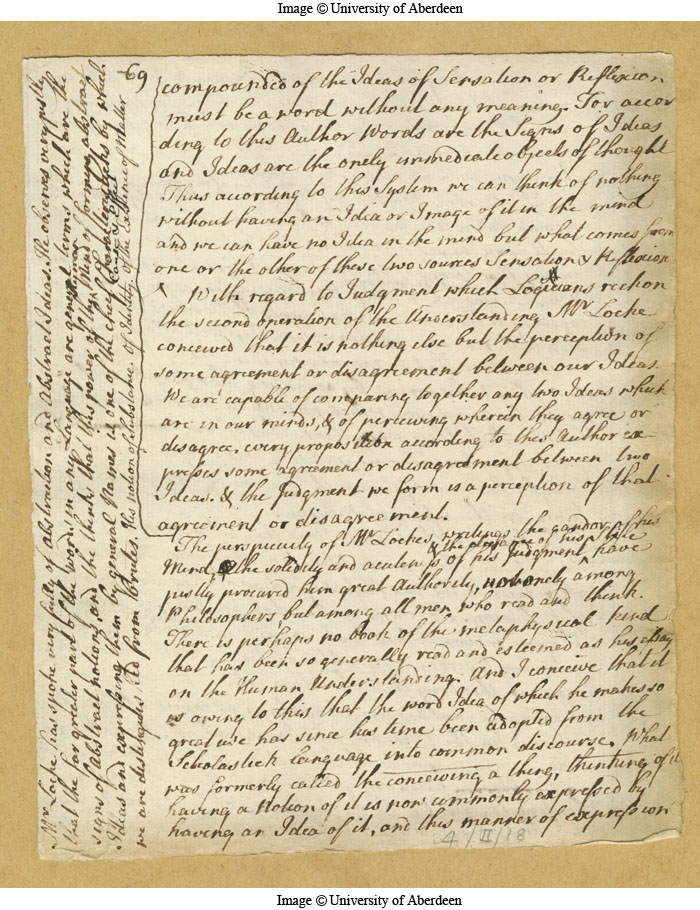 Image © University of Aberdeen
69
compounded of the Ideas of Sensation or Reflexion
must be a word without any meaning. For accor
ding to this Author Words are the Signs of Ideas
and Ideas are the onely immediate objects of thought
Thus according to this System we can think of nothing
without having an Idea or Image of it in the mind
and we can have no Idea in the mind but what comes from
one or the other of these two sources Sensation & Reflexion
With regard to Judgment which Logicians reckon
the second operation of the Understanding Mr Locke
conceived that it is nothing else but the perception of
some agreement or disagreement between our Ideas.
We are capable of comparing together any two Ideas which
are in our minds, & of perceiving wherein they agree or
disagree, every proposition according to this Author ex
presses some agreement or disagreement between two
Ideas. & the Judgment we form is a perception of that
agreement or disagreement.
The perspicuity of Mr Lockes writings the candor of his
Mind, & the solidity and acuteness of his Judgment have
justly procured him great Authority, not onely among
Philosophers, but among all men who read and think.
There is perhaps no book of the metaphysical kind
that has been so generally read and esteemed as his essay
on the Human Understanding. And I conceive that it
is owing to this that the word Idea of which he makes so
great use has since his time been adopted from the
Scholastick Language into common discourse. What
was formerly called the conceiving a thing, thinking of it
having a Notion of it is now commonly expressed by
having an Idea of it, and this manner of expression
4/II/18
Mr Locke has spoke very fully of abstraction and Abstract Ideas. He observes very justly
that the far greater part of the words in any Language are general terms which are the
signs of abstract notions, and he thinks that this power of the Mind of forming abstract
Ideas and expressing them by general Names is one of the chief by which
we are distinguished from brutes. His notion of Substance of Identity of the Existence of Matter
Cause & Effect
Image © University of Aberdeen